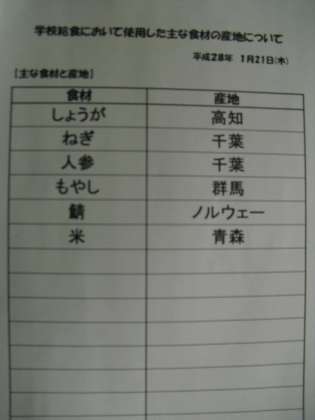 学校給食において使用した主な食材の産地について
平成28年 1月21日(木)
[主な食材と産地]
食材 産地
しょうが 高知
ねぎ 千葉
人参 千葉
もやし 群馬
鯖 ノルウェー
米 青森